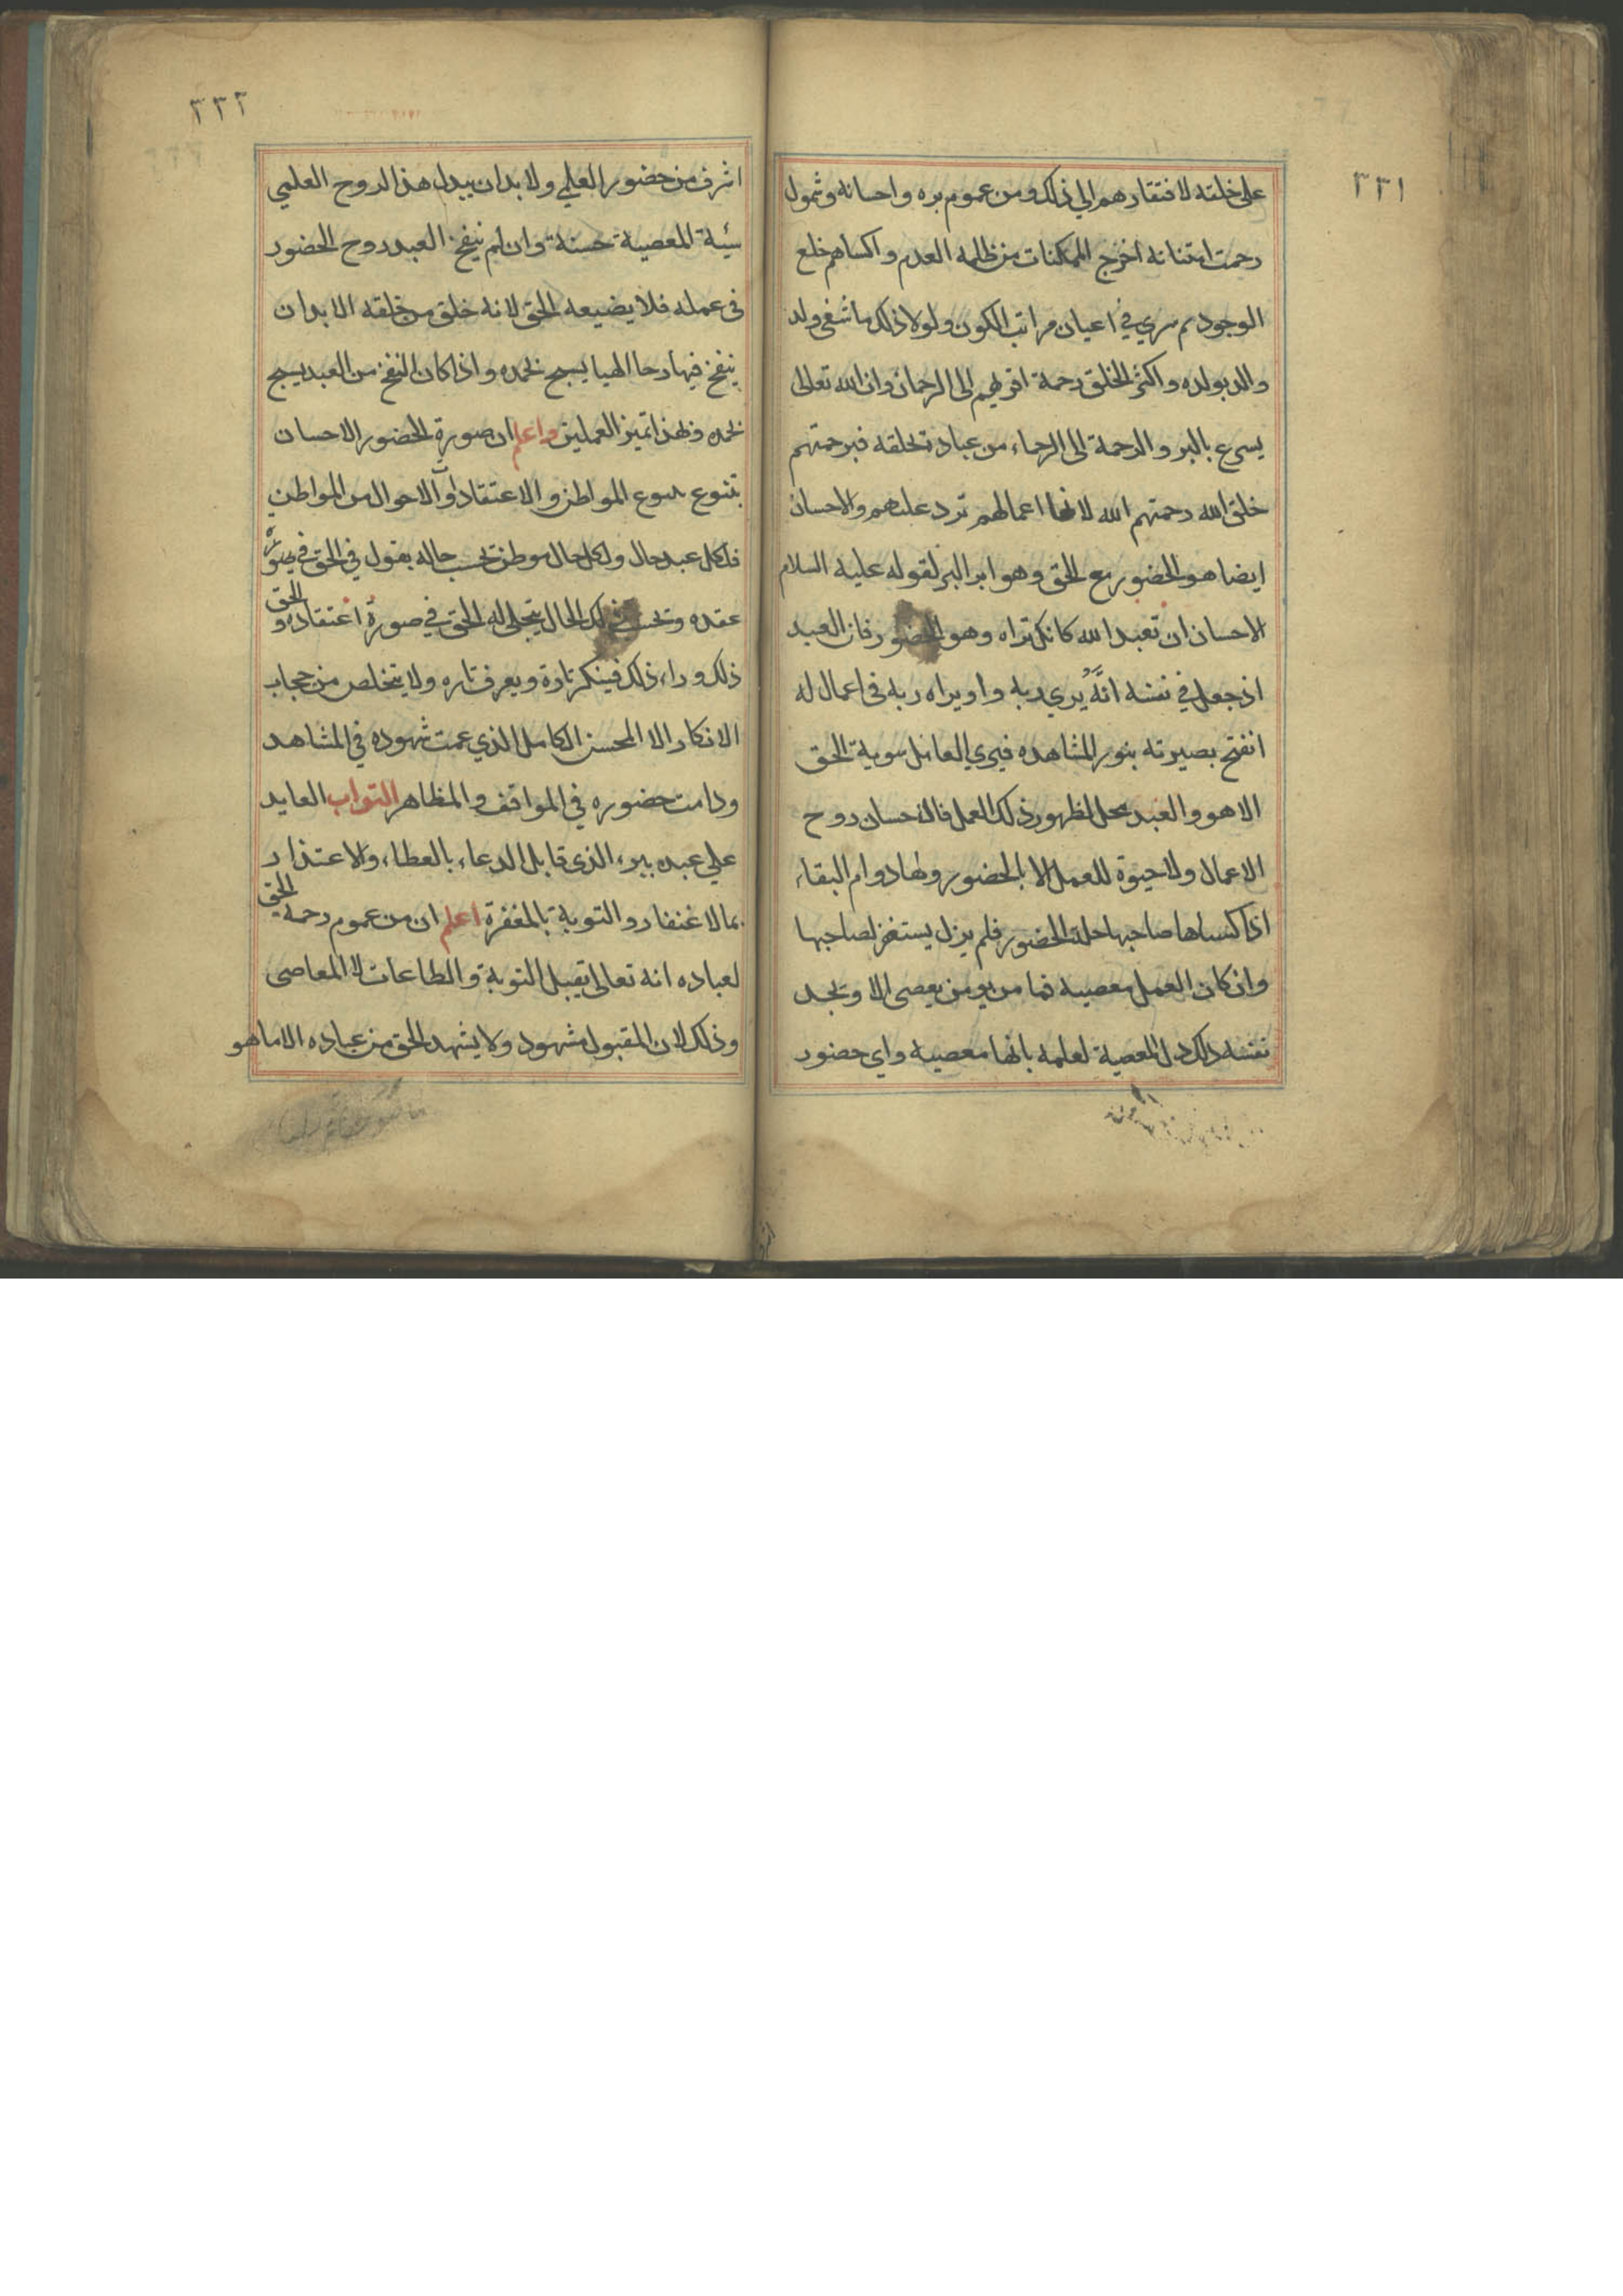 ٣٣١
على خلقه لافتقارهم الي ذلك ومن عموم بره واحسانه وشمول
رحمت امتنانه اخرج الممكنات من ظلمه العدم واكساهم خلع
الوجود ثم سري في اعيان مراتب الكون ولولا ذلك ما شفى ولد
والد بولده واكثر الخلق رحمة اقربهم الى الرحمان وان الله تعالى
يسرع بالبر والرحمة الى الرحماء من عباده لخلقه فبرحمتهم
خلق الله رحمتهم الله لانها اعمالهم ترد عليهم والاحسان
ايضا هو الحضور مع الحق وهو ابر البر لقوله عليه السلام
الاحسان ان تعبد الله كانك تراه وهو الحضور فان العبد
اذ جعل في نفسه انه يري ربه واو يراه ربه فى اعمال له
انفتح بصيرته بنور المشاهده فيري العامل سوية الحق
الا هو والعبد محل لظهور ذلك العمل فالاحسان روح
الاعمال ولا حيوة للعمل الا بالحضور ولها دوام البقاء
اذا كساها صاحبها حلة الحضور فلم يزل يستغفر لصاحبها
وان كان العمل معصية فما من يومن يعصى الا وتجد
نفسه ذلك دل المعصية لعلمه بانها معصيه واي حضور
٣٣٢
اشرف من حضور العلمي ولا بد ان يبدل هذا الروح العلمي
سيئة المعصية حسنة وان لم ينفخ العبد روح الحضور
فى عمله فلا يضيعه الحق لانه خلق من خلقه الا بد ان
ينفخ فيها رحا الهيا يسبح بحمده واذا كان النفخ من العبد يسبح
بحمده وبهذا تميز العملين واعلم ان صورة الحضور الاحسان
تتنوع بتنوع المواطن والاعتقادات والاحوال من المواطن
فلكل عبد حال ولكل حال موطن بحسب حاله يقول في الحق في صورة
عقده وبحسب ذلك الحال يتجلى له الحق في صورة اعتقاده والحق
ذلك وراء ذلك فينكر تارة ويعرف تاره ولا يتخلص من حجاب
الانكار الا المحسن الكامل الذي عمت شهوده في المشاهد
ودامت حضوره في المواقف والمظاهر التواب العايد
علي عبده ببره الذى قابل الدعاء بالعطاء والاعتذار
بمالاغنفار والتوبة بالمغفرة اعلم ان من عموم رحمة الحق
لعباده انه تعالى يقبل التوبة والطاعات لا المعاصى
وذلك لان المقبول مشهود ولا يشهد الحق من عباده الا ما هو